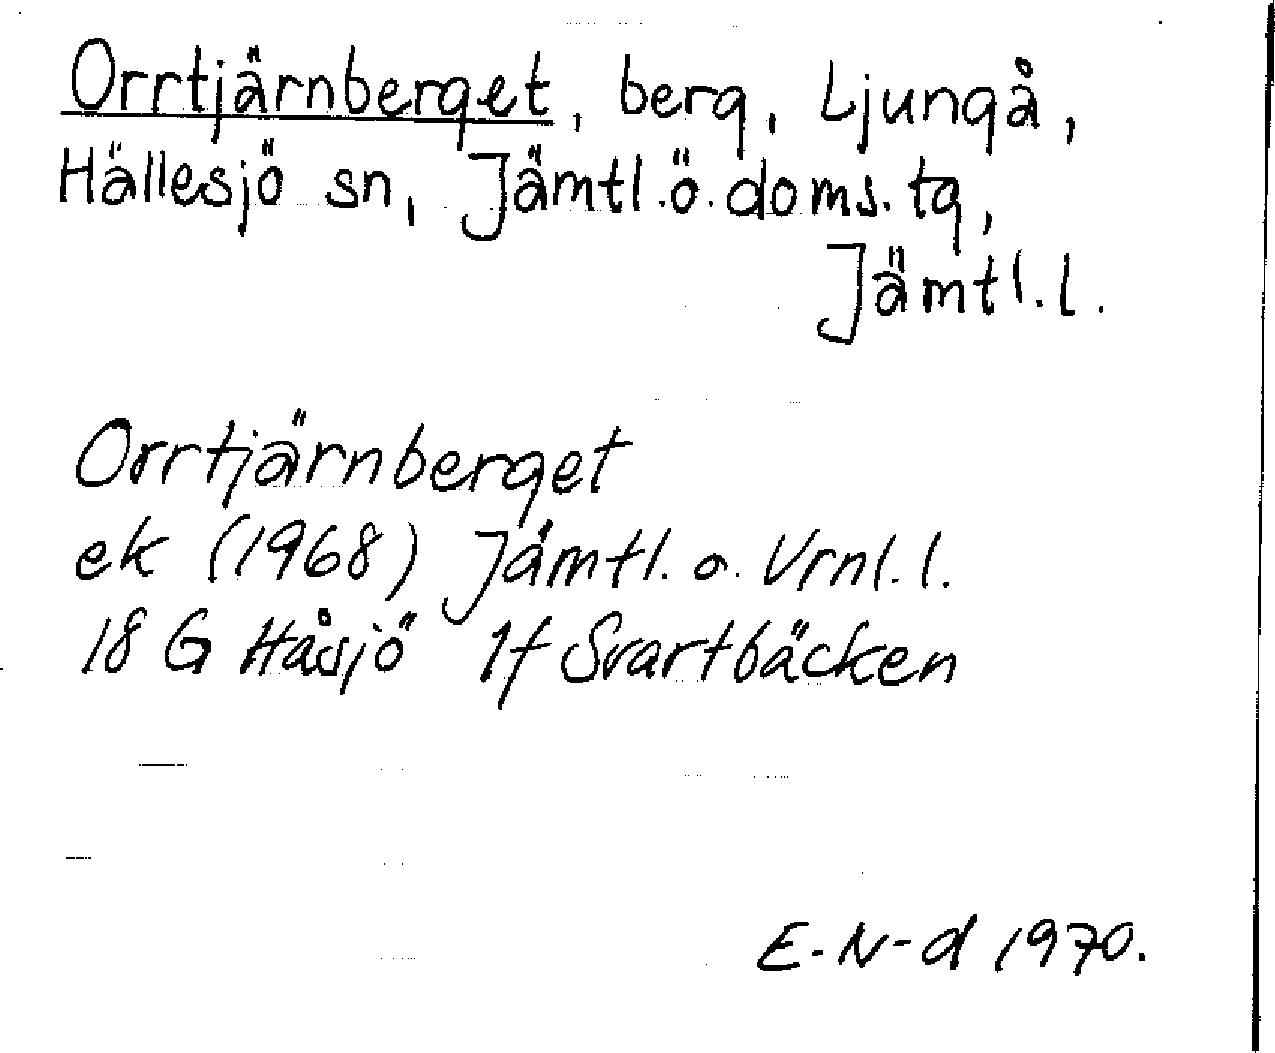 Orrtjärnberget, berg, Ljungå,
Hällesjö sn, Jämtl.ö.doms.tg,
Jämtl.l.
Orrtjärnberget
ek (1968) Jämtl. o. Vrnl.l.
18 G Håsjö 1f Svartbäcken
E.N-d 1970.